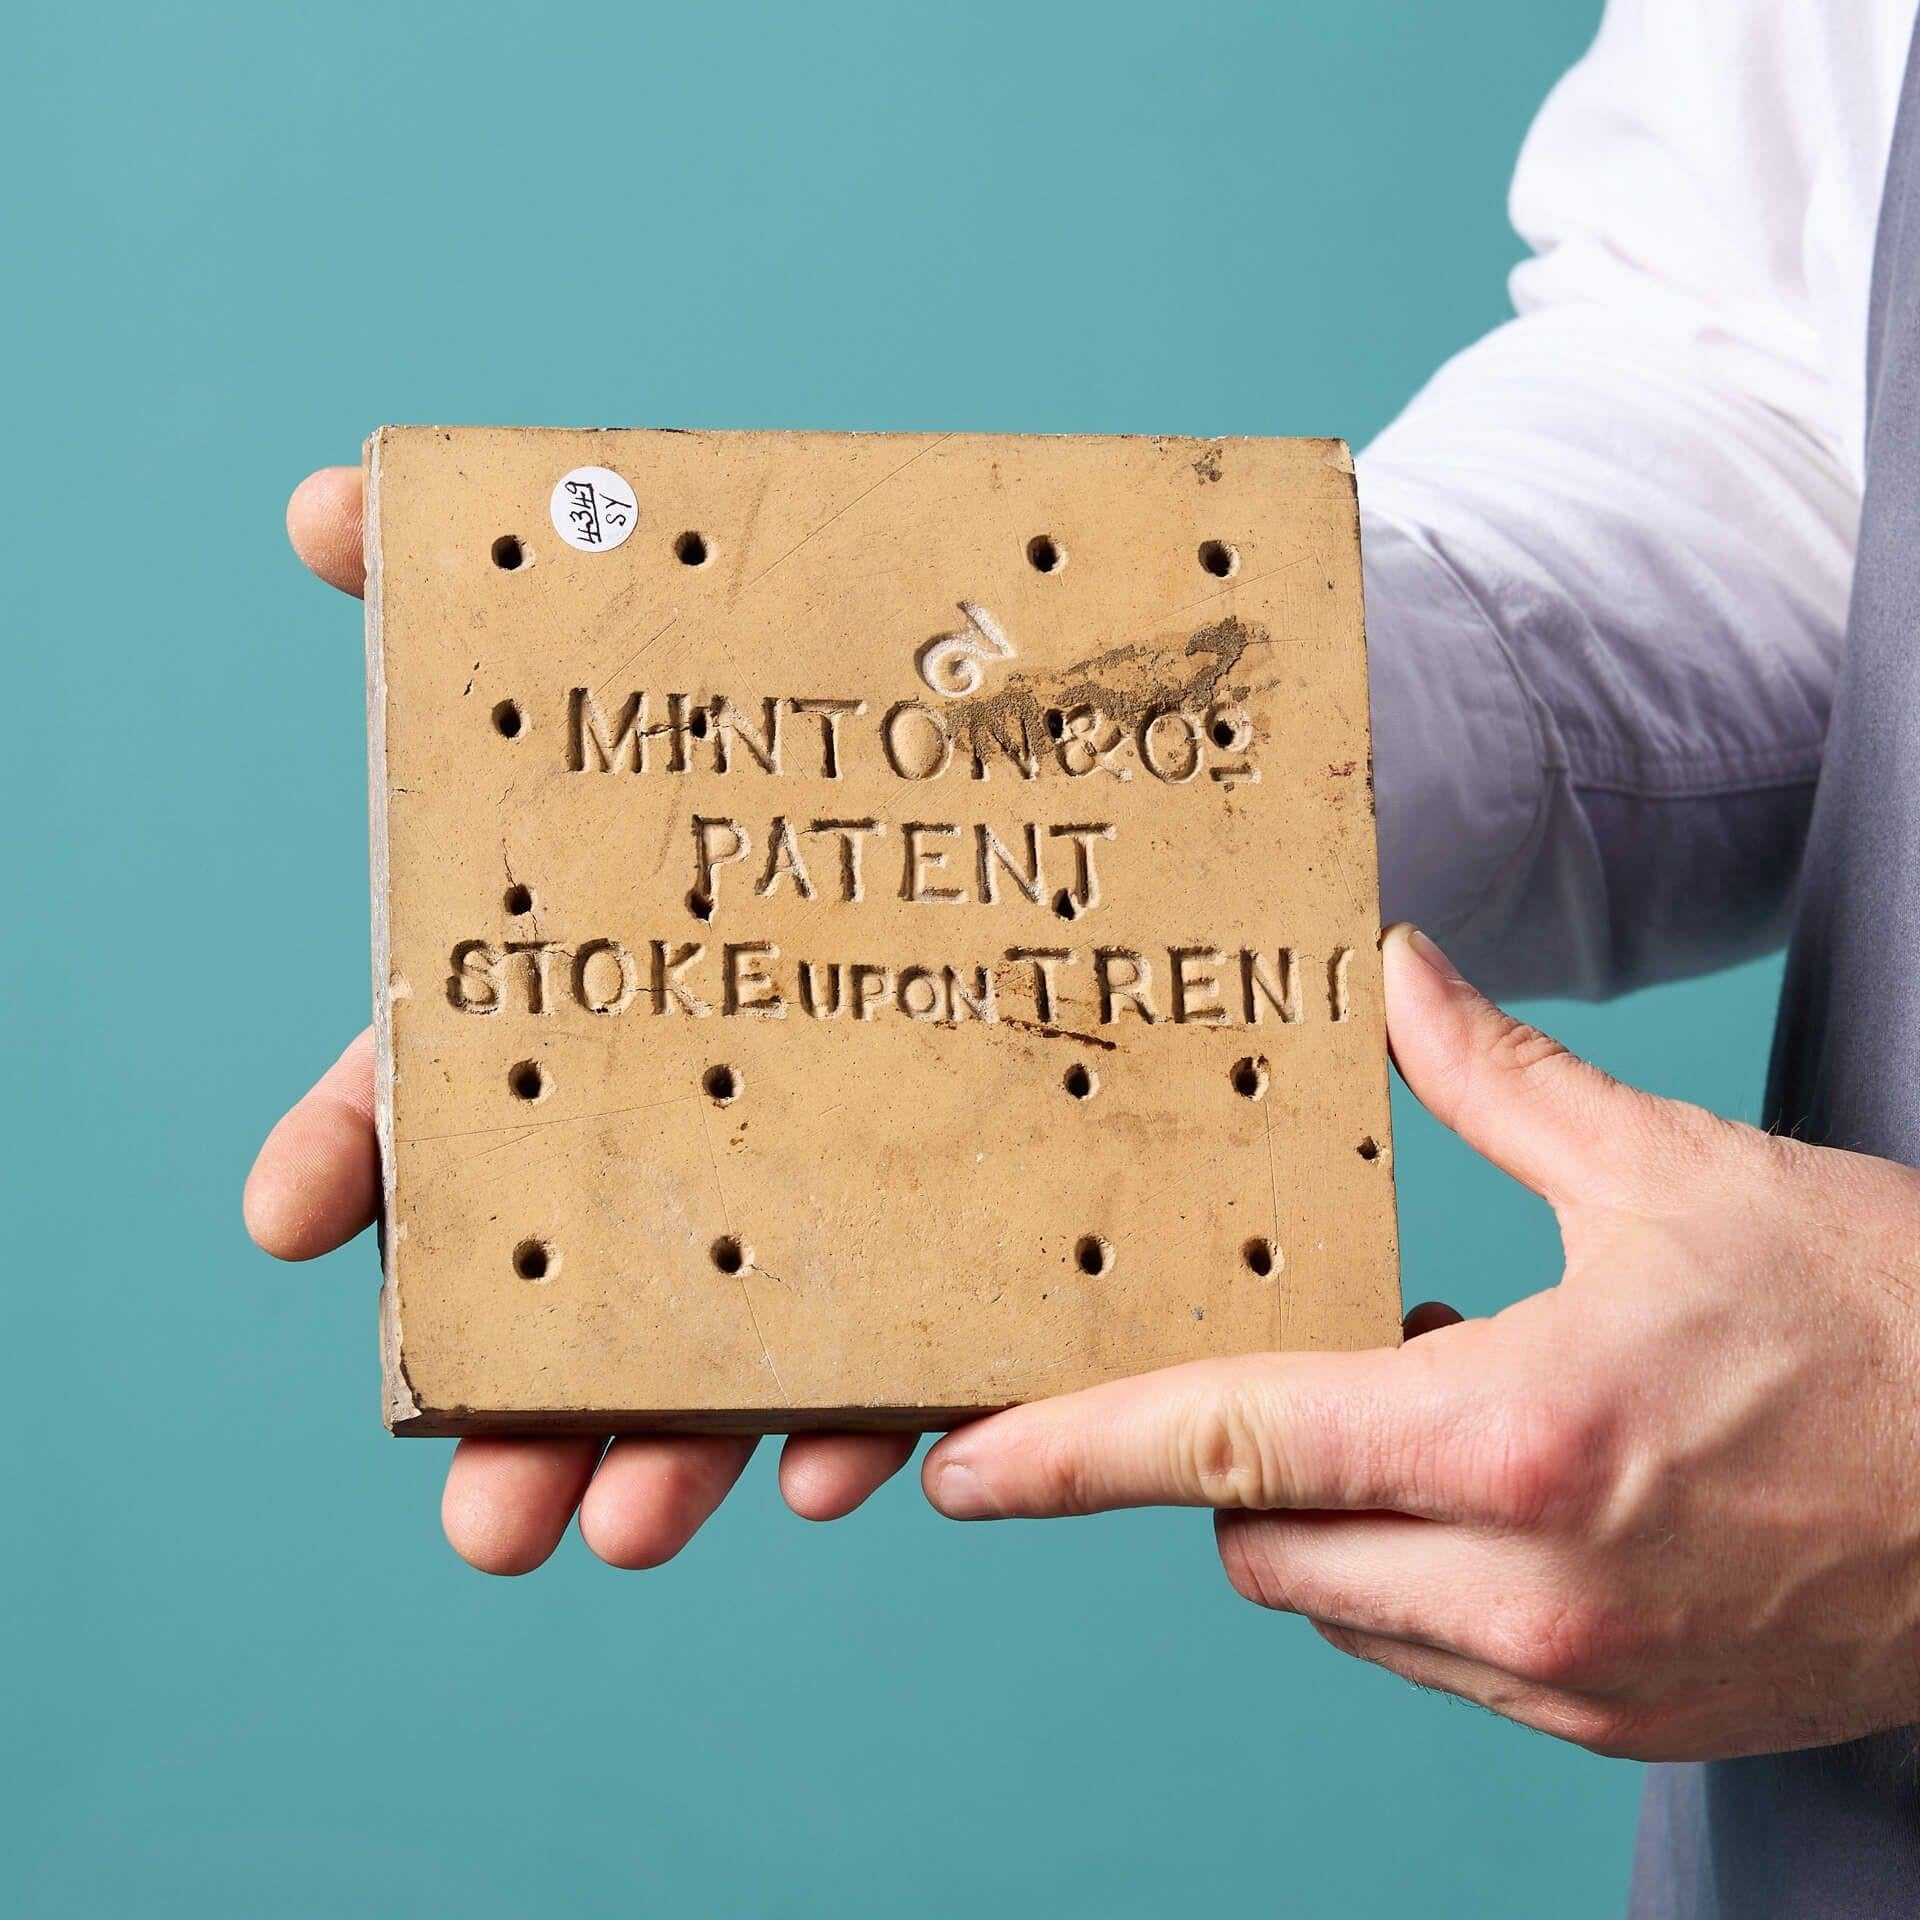 4349
SY
MINTON & Co
PATENT
STOKE UPON TRENT